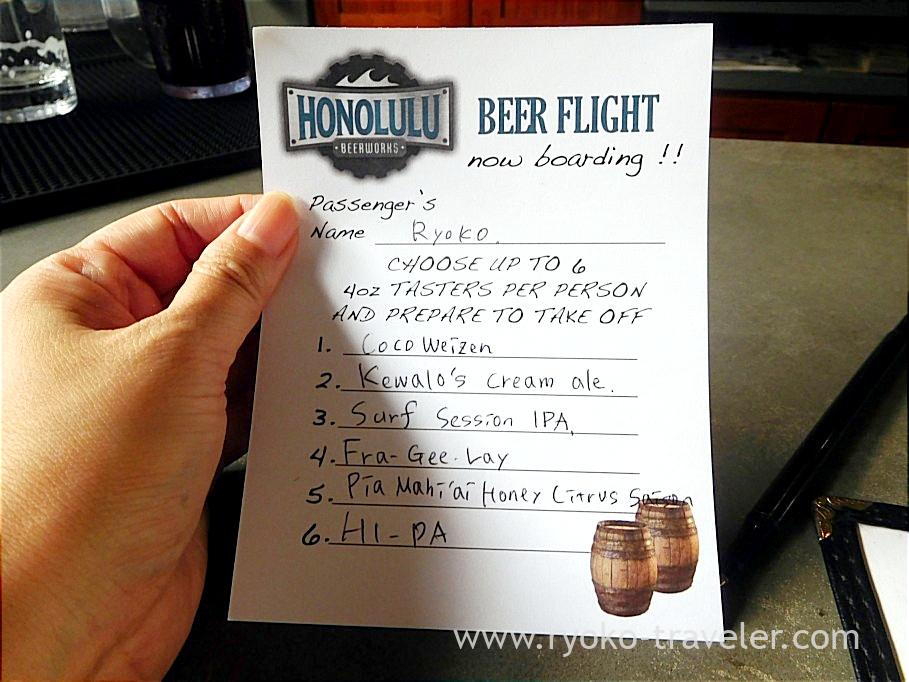 HONOLULU
BEERWORKS
BEER FLIGHT
now boarding !!
Passenger's
Name Ryoko.
CHOOSE UP TO 6
4oz TASTERS PER PERSON
AND PREPARE TO TAKE OFF
1. Coco Weizen
2. Kewalo's cream ale.
3. Surf Session IPA,
4. Fra-Gee-Lay
5. Pia Mahi'ai Honey Citrus Saison
6. HI-PA
www.ryoko-traveler.com